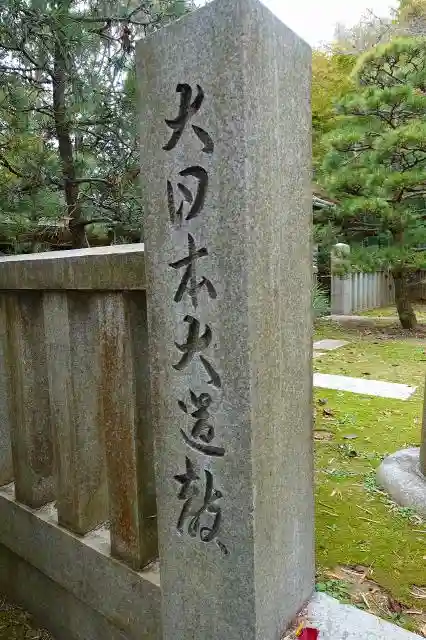 大日本大道教